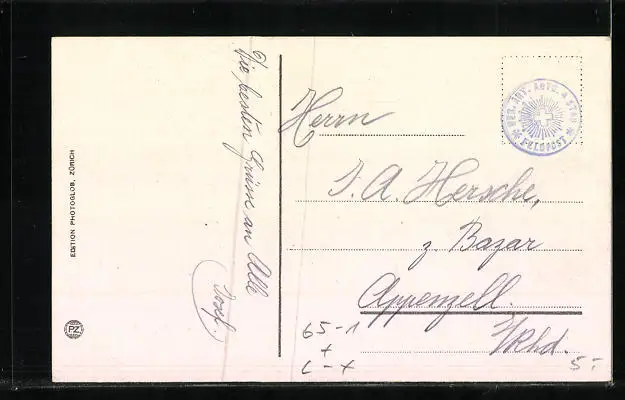 Die besten Grüsse an Alle
Josef
Herrn
J. A. Hersche,
z. Bazar
Appenzell.
I/Rhd.
GEB. ART. ABTG. 4 STAB
* FELDPOST *
EDITION PHOTOGLOB, ZÜRICH
PZ
65-1
+
L-x
5.-